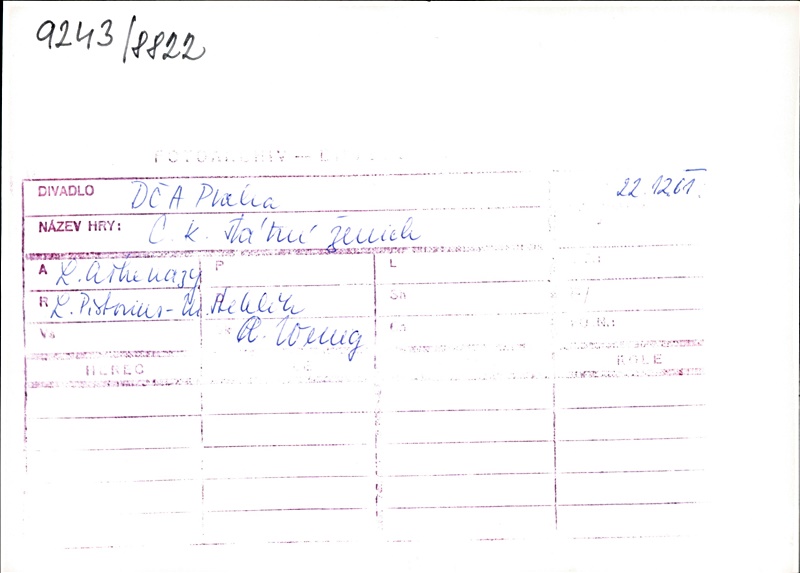 9243/8822
FOTOARCHIV –
DIVADLO DČA Praha 22.12.61.
NÁZEV HRY: C. k. státní ženich
A L. Athenazy P L
R L. Pistorius - M. Stehlík Sn
Vs A. Wenig
HEREC ROLE